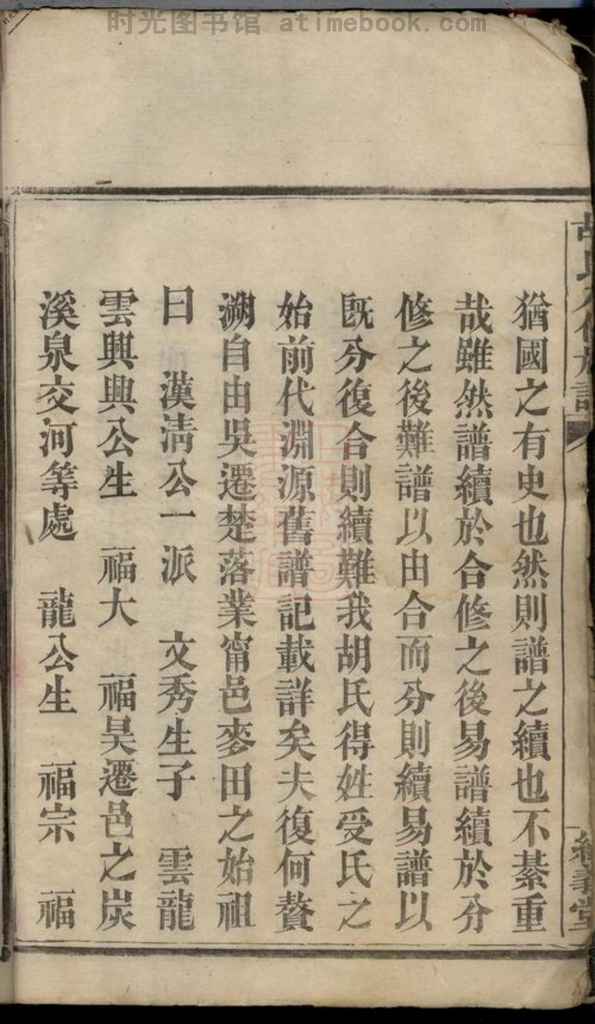 时光图书馆 - atimebook.com -
猶國之有史也然則譜之續也不綦重
哉雖然譜續於合修之後易譜續於分
修之後難譜以由合而分則續易譜以
既分復合則續難我胡氏得姓受氏之
始前代淵源舊譜記載詳矣夫復何贅
溯自由吳遷楚落業甯邑麥田之始祖
曰 漢清公一派 文秀生子 雲龍
雲興興公生 福大 福昊遷邑之炭
溪泉交河等處 龍公生 福宗 福